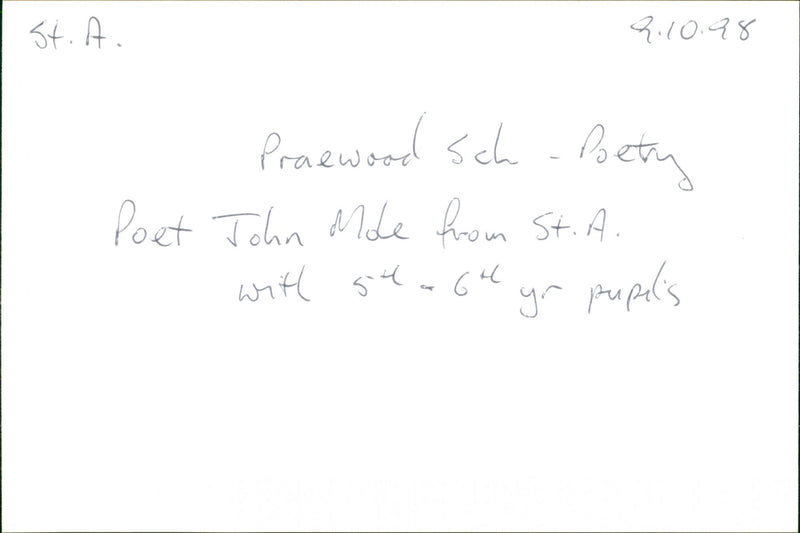 St. A. 9.10.98
Praewood Sch - Poetry
Poet John Mole from St. A.
with 5th - 6th yr pupils